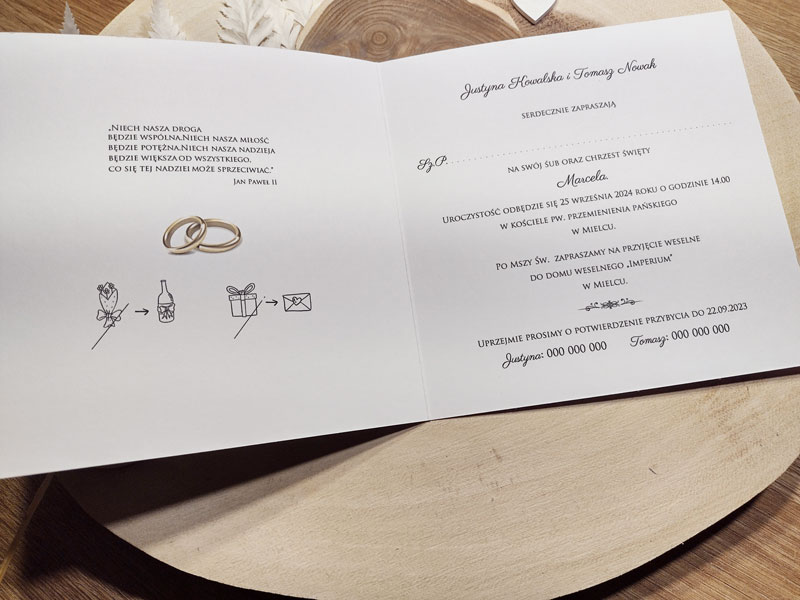 „Niech nasza droga
będzie wspólna.Niech nasza miłość
będzie potężna.Niech nasza nadzieja
będzie większa od wszystkiego,
co się tej nadziei może sprzeciwiać.”
Jan Paweł II
Justyna Kowalska i Tomasz Nowak
serdecznie zapraszają
Sz.P.
na swój śub oraz chrzest święty
Marcela.
Uroczystość odbędzie się 25 września 2024 roku o godzinie 14.00
w kościele pw. Przemienienia Pańskiego
w Mielcu.
Po Mszy Św. zapraszamy na przyjęcie weselne
do domu weselnego „Imperium”
w Mielcu.
Uprzejmie prosimy o potwierdzenie przybycia do 22.09.2023
Justyna: 000 000 000 Tomasz: 000 000 000